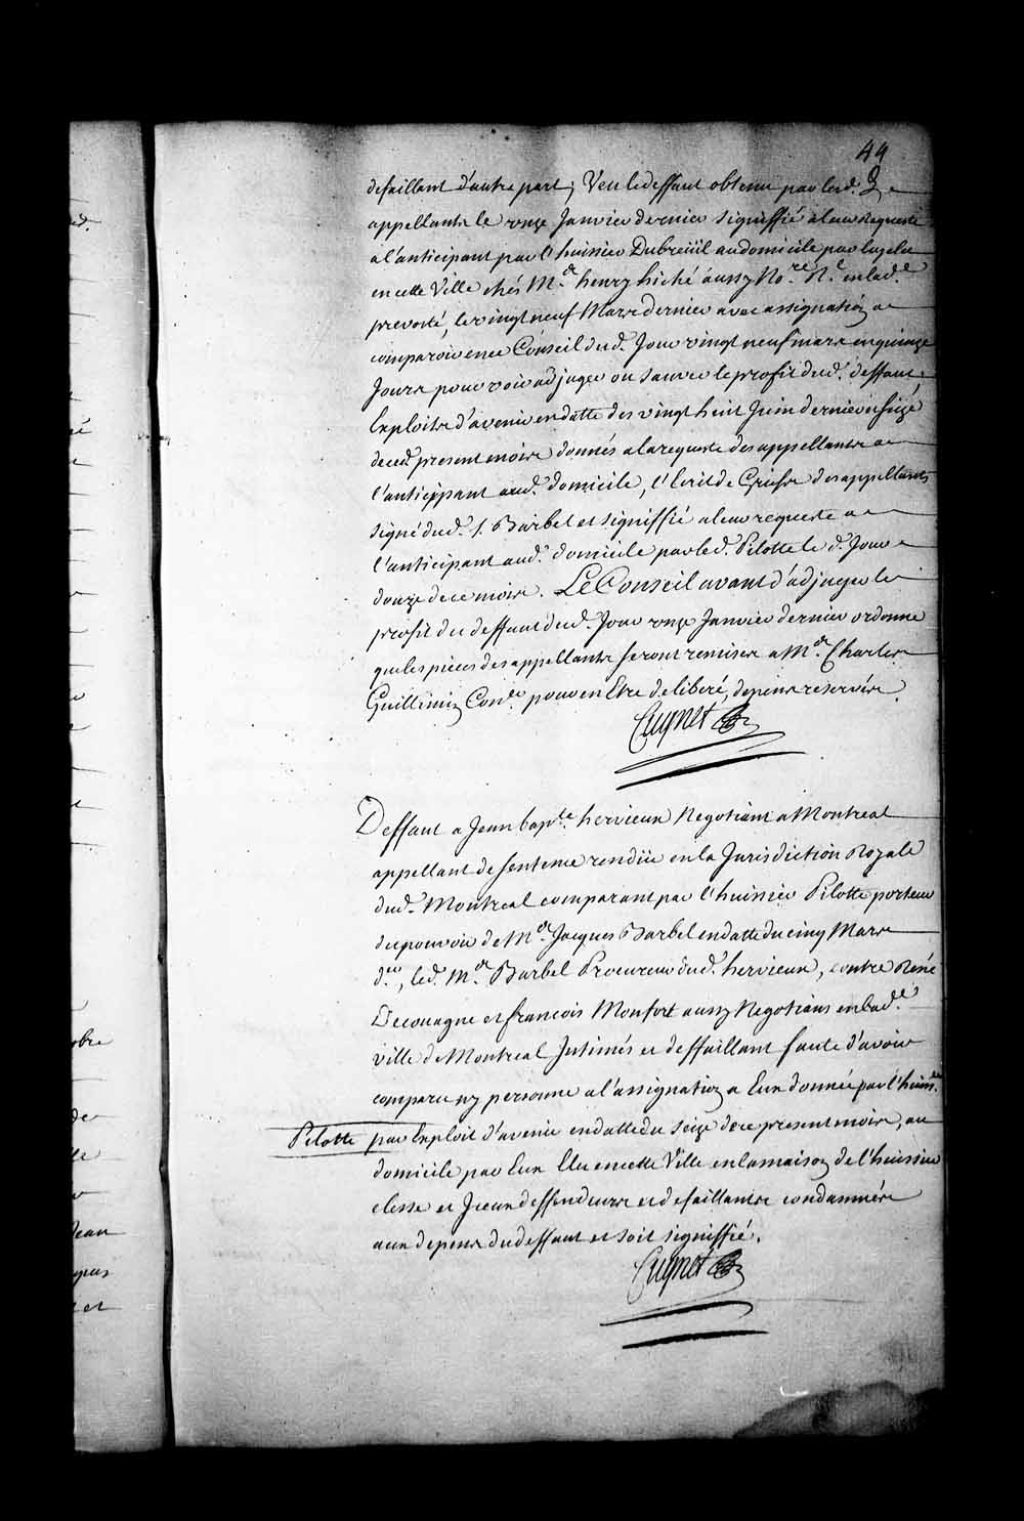 44
defaillant d'autre part; Veu ledeffaut obtenu par lesd.
appellants le onze Janvier dernier signiffié a leur Requeste
a l'anticipant par l'huissier Dubreüil au domicile par luy elu
en cette Ville chés Me. henry hiché aussy No.re R.l en lad.e
prevosté, le vingt neuf Mars dernier avec assignation a
comparoir en ce Conseil dud. Jour vingt neuf mars en quinze
Jours pour voir adjuger ou sauver le profit dud. deffaut
Exploits d'avenir en datte des vingt huit Juin dernier et seize
de ced. present mois donnés a la requeste des appellants a
l'anticipant aud. domicile, l'Ecrit de Griefs des appellants
signé dud. S. Barbel et signiffié a leur requeste a
l'anticipant aud. domicile par led. Pilotte le d. Jour
douze de ce mois. Le Conseil avant d'adjuger le
profit du deffaut dud. Jour onze Janvier dernier ordonne
que les pieces des appellants seront remises a Me. Charles
Guillimin Con.er pour en Etre deliberé, depens reservés.
Cugnet
Deffaut a Jean bap.te hervieux Negotiant a Montreal
appellant de sentence rendüe en la Jurisdiction Royale
dud. Montreal comparant par l'huissier Pilotte porteur
du pouvoir de Me. Jacques Barbel en datte du cinq Mars
d.er, led. Me. Barbel Procureur dud. hervieux, contre René
Decouagne et francois Monfort aussy Negotians en lad.e
ville de Montreal Intimés et deffaillant faute d'avoir
comparu ny personne a l'assignation a Eux donnée par l'huiss.er
Pilotte par Exploit d'avenir en datte du seize de ce present mois, au
domicile par Eux Elu en cette Ville en la maison de l'huissier
clesse et Iceux deffendeurs et defaillants condamnés
aux depens dudeffaut et soit signiffié.
Cugnet